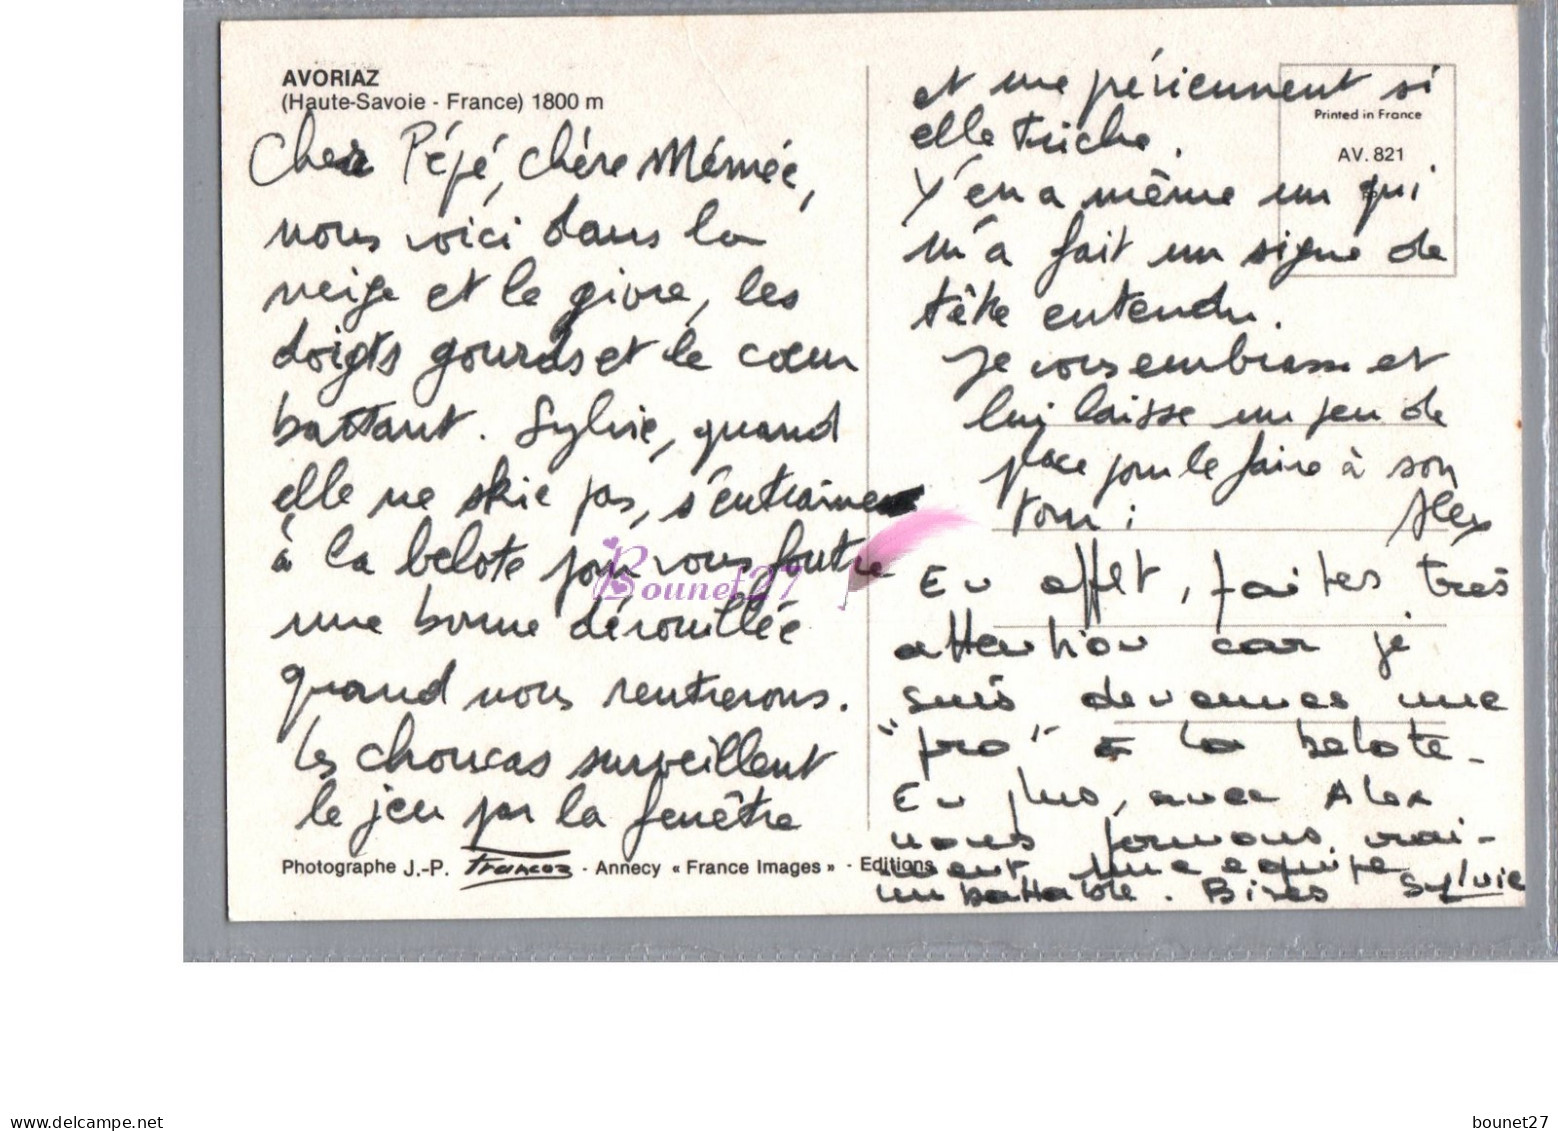 AVORIAZ
(Haute-Savoie - France) 1800 m
Cher Pépé, chère Mémée,
nous voici dans la
neige et le givre, les
doigts gourds et le cœur
battant. Sylvie, quand
elle ne skie pas, s'entraine
à la belote pour vous foutre
une bonne dérouillée
quand nous rentrerons.
Les choucas surveillent
le jeu par la fenêtre
Photographe J.-P. Francoz - Annecy « France Images » - Editions
et me préviennent si
elle triche.
Y'en a même un qui
m'a fait un signe de
tête entendu.
Je vous embrasse et
lui laisse un peu de
place pour le faire à son
tour : Alex
En effet, faites très
attention car je
suis devenues une
"pro" à la belote.
En plus, avec Alex
nous formons vrai-
ment une equipe
imbattable. Bises Sylvie
Printed in France
AV. 821
Bounet27
www.delcampe.net
bounet27